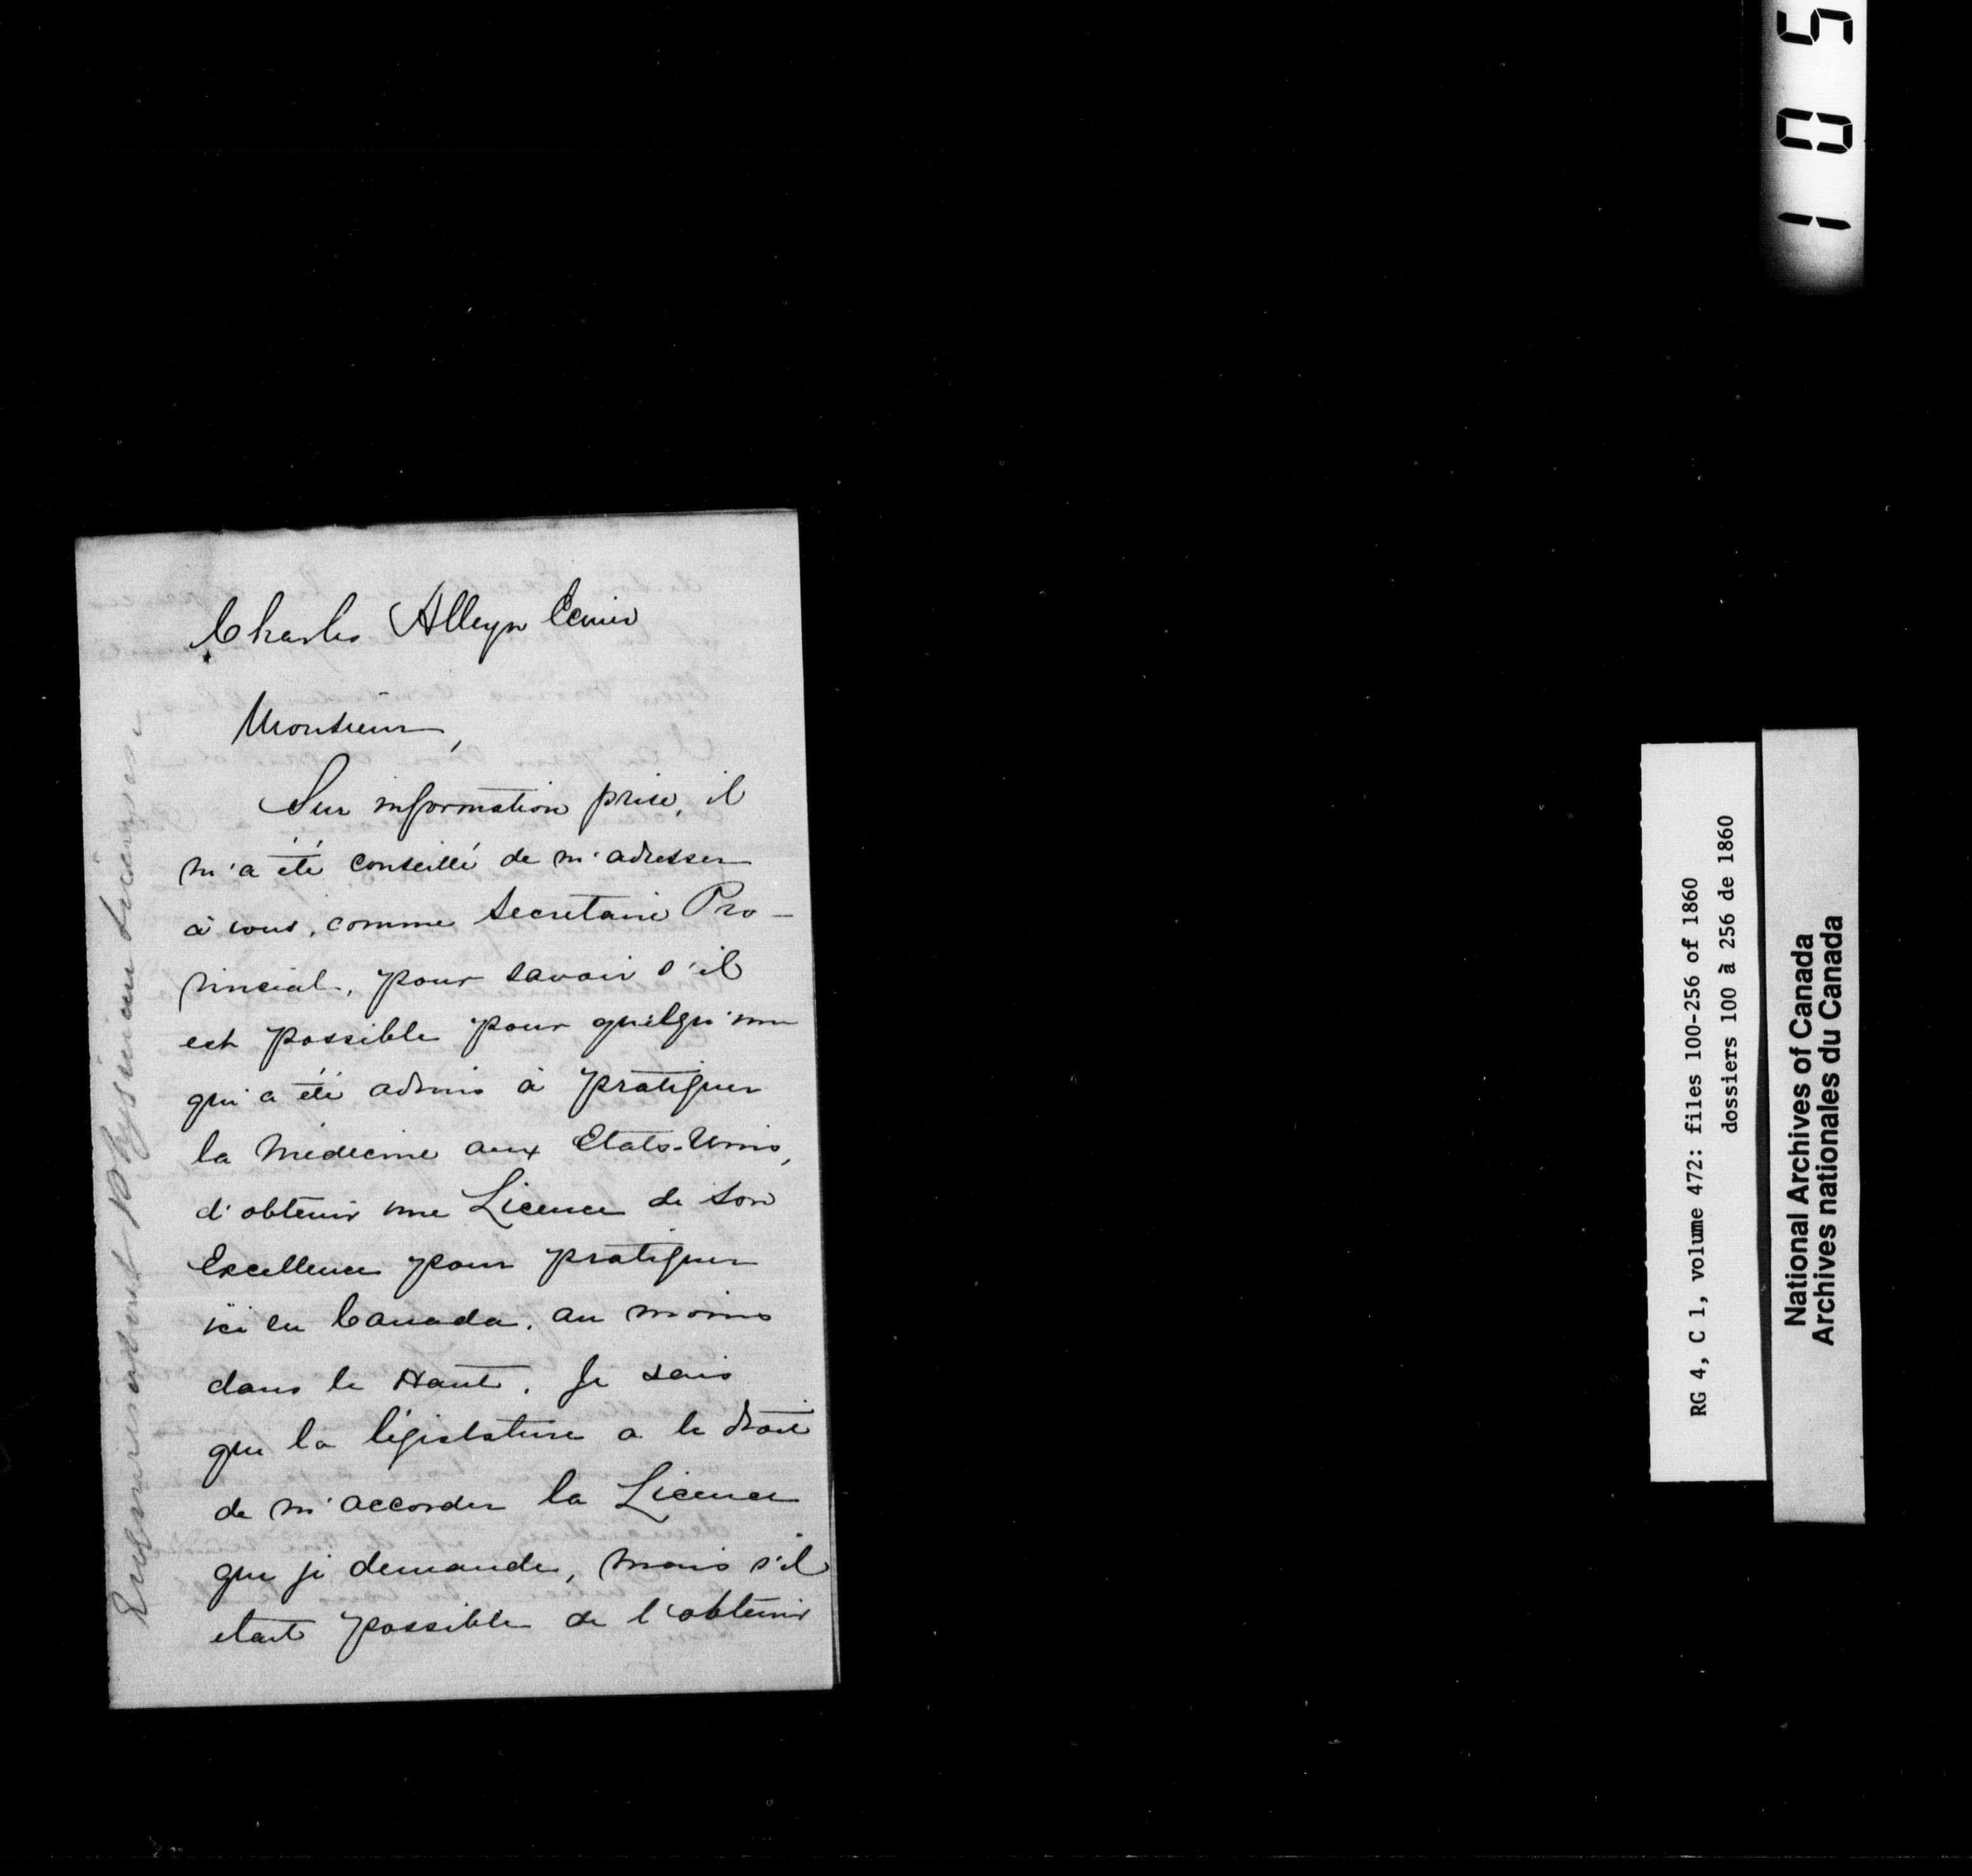 Charles Alleyn Ecuier
Monsieur,
Sur information prise, il
m'a été conseillé de m'adresser
à vous, comme Secretaire Pro-
vincial, pour savoir s'il
est possible pour quelqu'un
qui a été admis à pratiquer
la médecine aux Etats-Unis,
d'obtenir une Licence de Son
Excellence pour pratiquer
ici en Canada, au moins
dans le Haut. Je sais
que la législature a le droit
de m'accorder la Licence
que je demande, mais s'il
etait possible de l'obtenir
about Physician Licenses
105
RG 4, C 1, volume 472: files 100-256 of 1860
dossiers 100 à 256 de 1860
National Archives of Canada
Archives nationales du Canada